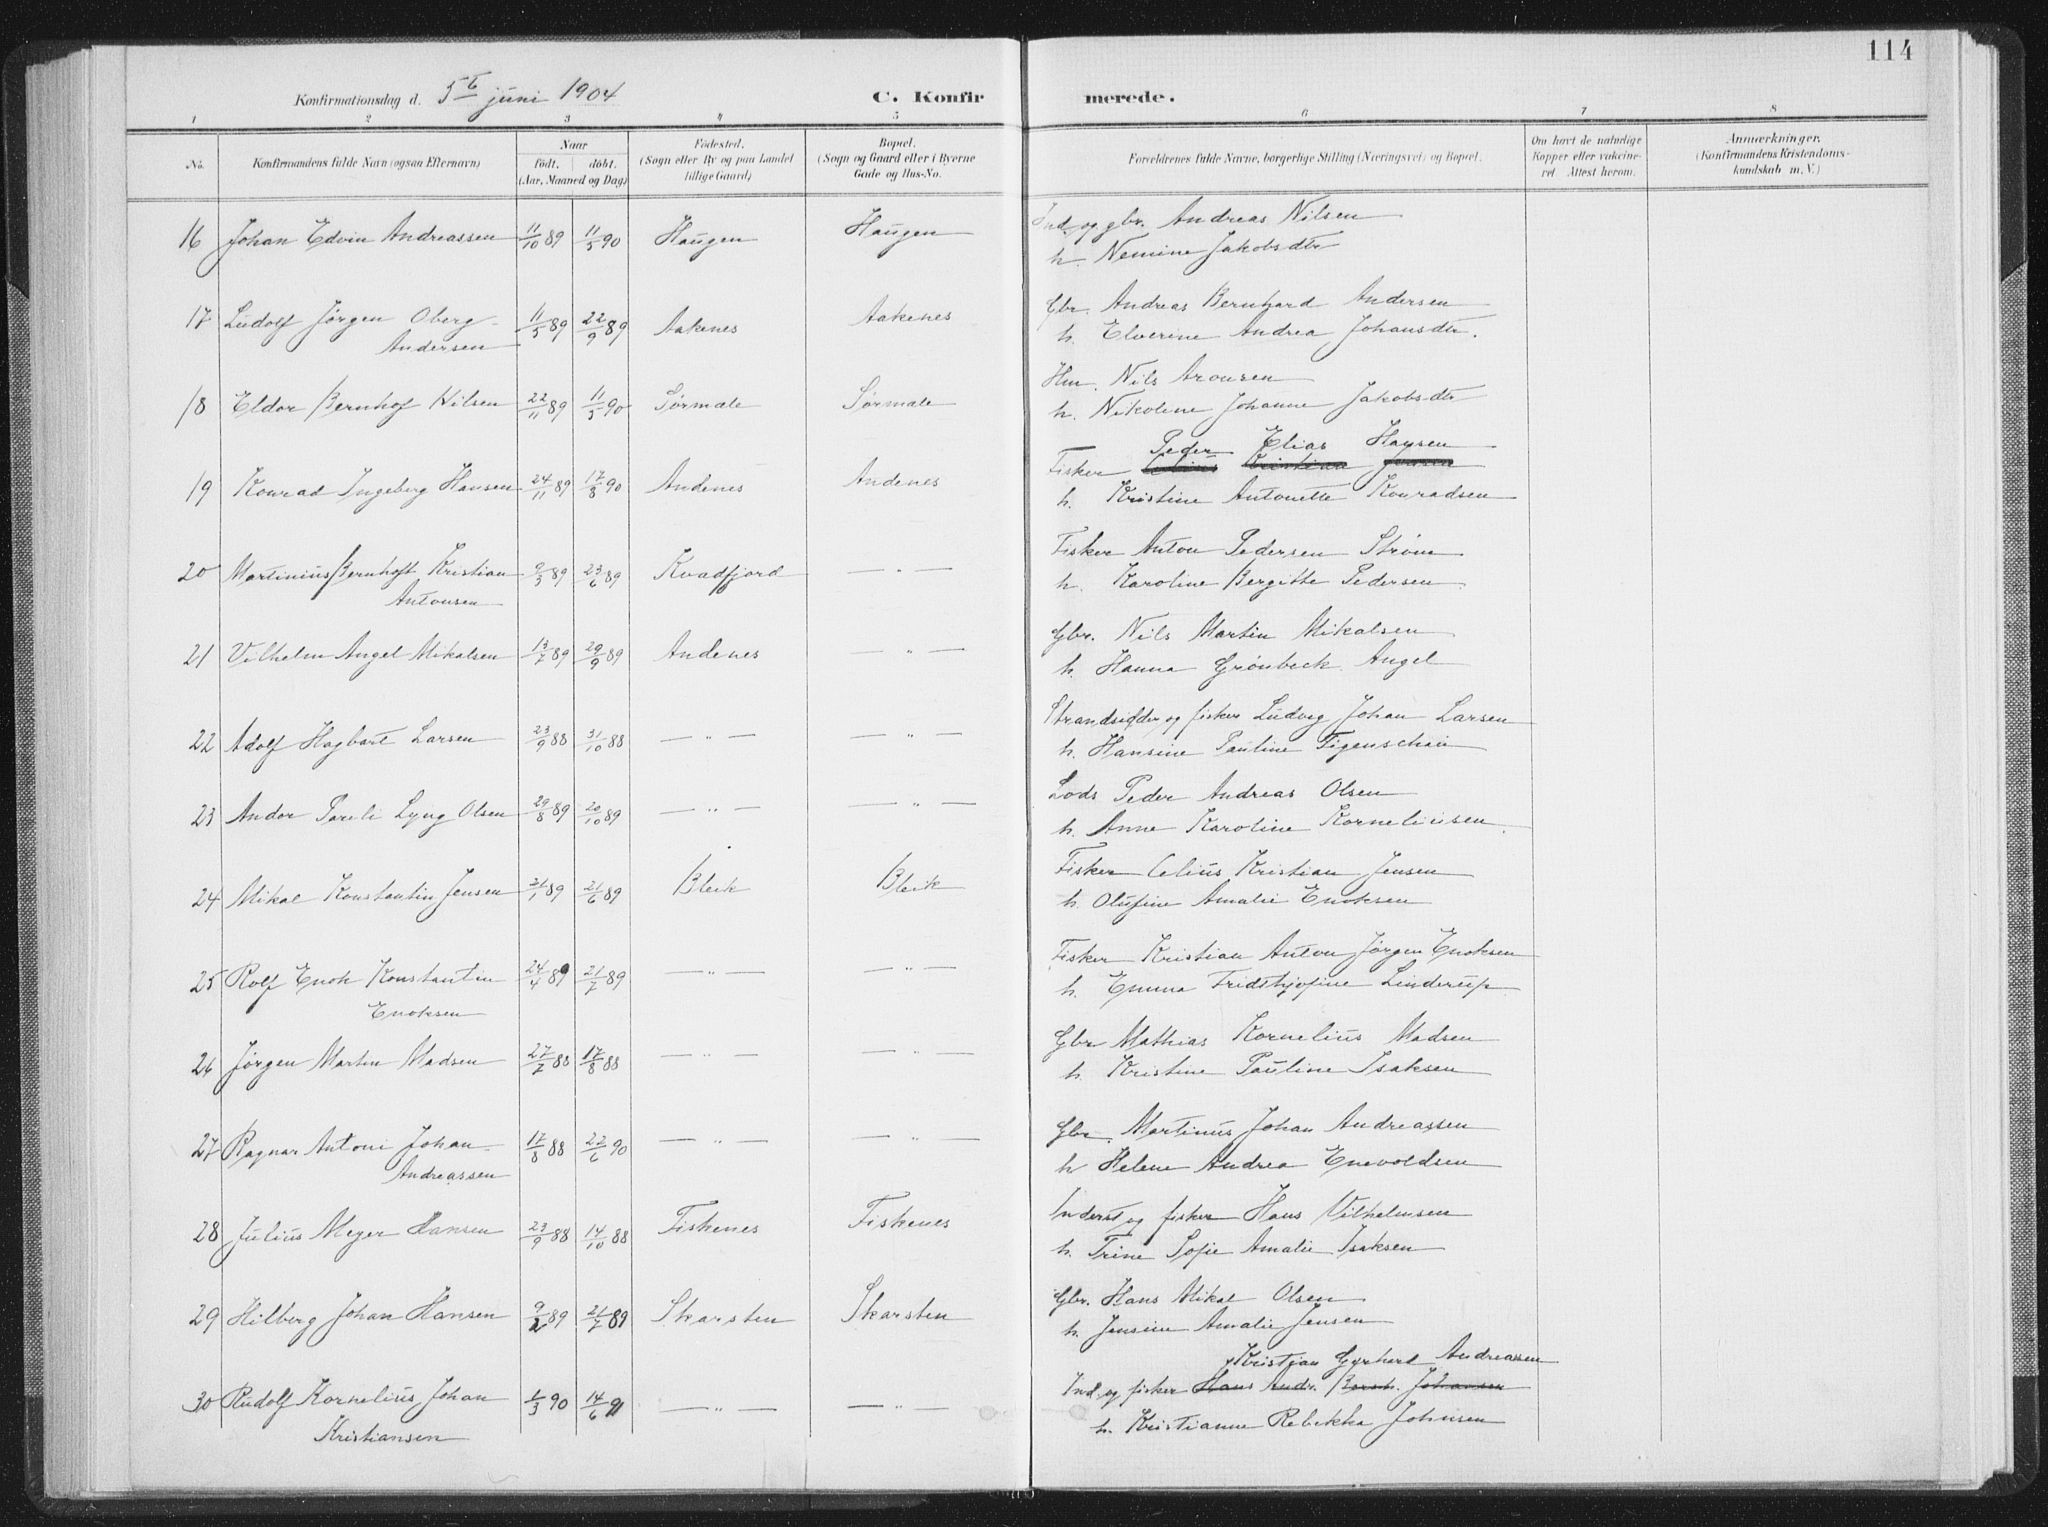 114
Konfirmationsdag d. 5te juni 1904 C. Konfir merede.
1 2 3 4 5 6 7 8
No. Konfirmandens fulde Navn (ogsaa Efternavn) Naar født. døbt. (Aar, Maaned og Dag) Fødested. (Sogn eller By og paa Landet tillige Gaard) Bopæl. (Sogn og Gaard eller i Byerne Gade og Hus-No. Forældrenes fulde Navne, borgerlige Stilling (Næringsvei) og Bopæl. Om havt de naturlige Kopper eller vakcineret Attest herom. Anmærkninger. (Konfirmandens Kristendomskundskab m. V.)
16 Johan Edvin Andreassen 11/10 89 11/5 90 Haugen Haugen Ind. og gbr. Andreas Nilsen
h. Nemine Jakobsdtr
17 Ludolf Jørgen Oberg 11/5 89 22/9 89 Aakenes Aakenes Gbr. Andreas Bernhard Andersen
Andersen h. Elverine Andrea Johansdtr.
18 Eldor Bernhof Nilsen 22/11 89 11/5 90 Sørmale Sørmale Hm. Nils Aronsen
h. Nikoline Johanne Jakobsdtr
Peder Elias Hansen
19 Konrad Ingeberg Hansen 24/11 89 17/8 90 Andenes Andenes Fisker
h. Kristine Antonette Konradsen
20 Martinius Bernhoft Kristian 9/3 89 23/6 89 Kvadfjord — " — Fisker Anton Pedersen Strøm
Antonsen h. Karoline Bergitte Pedersen
21 Vilhelm Angel Mikalsen 13/7 89 29/9 89 Andenes — " — Gbr. Nils Martin Mikalsen
h. Hanna Grønbeck Angel
22 Adolf Hagbart Larsen 23/9 88 31/10 88 — " — — " — Strandsidder og fisker Ludvig Johan Larsen
h. Hansine Pauline Figenschau
23 Andor Pareli Lyng Olsen 29/8 89 20/10 89 — " — — " — Lods Peder Andreas Olsen
h. Anne Karoline Korneliusen
24 Mikal Konstantin Jensen 21/1 89 21/6 89 Bleik Bleik Fisker Celius Kristian Jensen
h. Olufine Amalie Enoksen
25 Rolf Enok Konstantin 24/4 89 21/7 89 — " — — " — Fisker Kristian Anton Jørgen Enoksen
Enoksen h. Emma Fridthjofine Linderup
26 Jørgen Martin Madsen 27/7 88 17/8 88 — " — — " — Gbr Mathias Kornelius Madsen
h. Kristine Pauline Isaksen
27 Ragnar Antoni Johan 17/8 88 22/6 90 — " — — " — Gbr. Martinus Johan Andreassen
Andreassen h Helene Andrea Enevoldsen
28 Julius Meyer Hansen 23/9 88 14/10 88 Fiskenes Fiskenes Inderst og fisker Hans Vilhelmsen
h. Trine Sofie Amalie Isaksen
29 Hilberg Johan Hansen 9/2 89 21/7 89 Skarsten Skarsten Gbr. Hans Mikal Olsen
h. Jensine Amalie Jensen
Kristian Gerhard Andreassen
30 Rudolf Kornelius Johan 1/3 90 14/6 91 — " — — " — Ind. og fisker Hans Andr. Bernh. Johansen
Kristiansen h. Kristianne Rebekka Johnsen